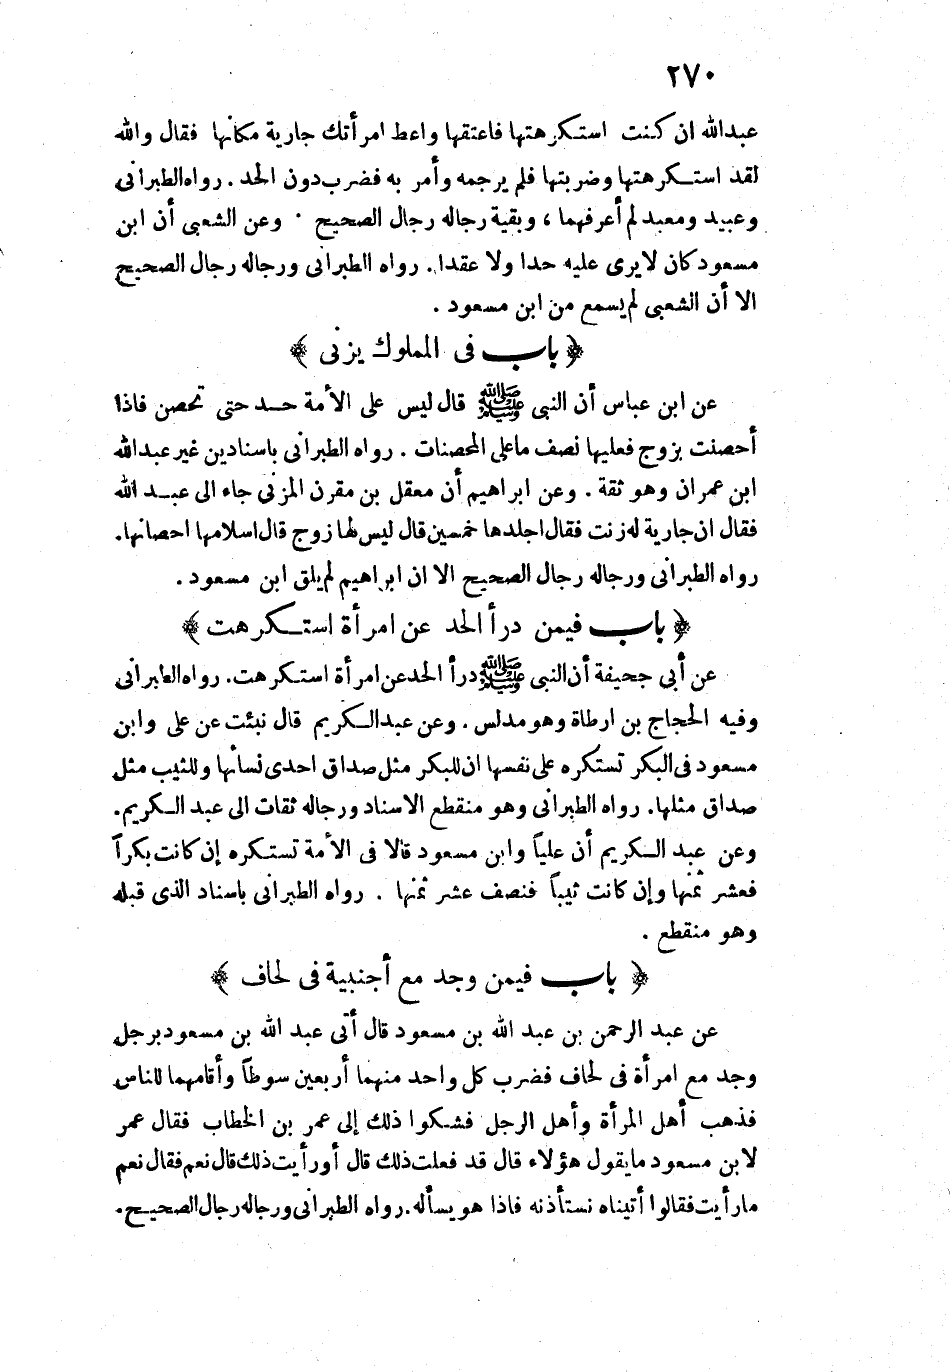 ٢٧٠
عبدالله ان كنت استكرهتها فاعتقها واعط امرأتك جارية مكانها فقال والله
لقد استكرهتها وضربتها فلم يرجمه وأمر به فضرب دون الحد . رواه الطبراني
وعبيد ومعبد لم أعرفهما ، وبقية رجاله رجال الصحيح . وعن الشعبي أن ابن
مسعود كان لا يرى عليه حدا ولا عقدا. رواه الطبراني ورجاله رجال الصحيح
الا أن الشعبي لم يسمع من ابن مسعود .
﴿ باب في المملوك يزني ﴾
عن ابن عباس أن النبي ﷺ قال ليس على الأمة حد حتى تحصن فاذا
أحصنت بزوج فعليها نصف ما على المحصنات . رواه الطبراني باسنادين غير عبدالله
ابن عمران وهو ثقة . وعن ابراهيم أن معقل بن مقرن المزني جاء الى عبد الله
فقال ان جارية له زنت فقال اجلدها خمسين قال ليس لها زوج قال اسلامها احصانها.
رواه الطبراني ورجاله رجال الصحيح الا ان ابراهيم لم يلق ابن مسعود .
﴿ باب فيمن درأ الحد عن امرأة استكرهت ﴾
عن أبي جحيفة أن النبي ﷺ درأ الحد عن امرأة استكرهت. رواه الطبراني
وفيه الحجاج بن ارطاة وهو مدلس . وعن عبدالكريم قال نبئت عن على وابن
مسعود في البكر تستكره على نفسها ان للبكر مثل صداق احدى نسائها وللثيب مثل
صداق مثلها. رواه الطبراني وهو منقطع الاسناد ورجاله ثقات الى عبد الكريم.
وعن عبد الكريم أن علياً وابن مسعود قالا في الأمة تستكره إن كانت بكراً
فعشر ثمنها وإن كانت ثيباً فنصف عشر ثمنها . رواه الطبراني باسناد الذي قبله
وهو منقطع .
﴿ باب فيمن وجد مع أجنبية في لحاف ﴾
عن عبد الرحمن بن عبد الله بن مسعود قال أتى عبد الله بن مسعود برجل
وجد مع امرأة في لحاف فضرب كل واحد منهما أربعين سوطاً وأقامهما للناس
فذهب أهل المرأة وأهل الرجل فشكوا ذلك إلى عمر بن الخطاب فقال عمر
لابن مسعود ما يقول هؤلاء قال قد فعلت ذلك قال أو رأيت ذلك قال نعم فقال نعم
ما رأيت فقالوا أتيناه نستأذنه فاذا هو يسأله. رواه الطبراني ورجاله رجال الصحيح.